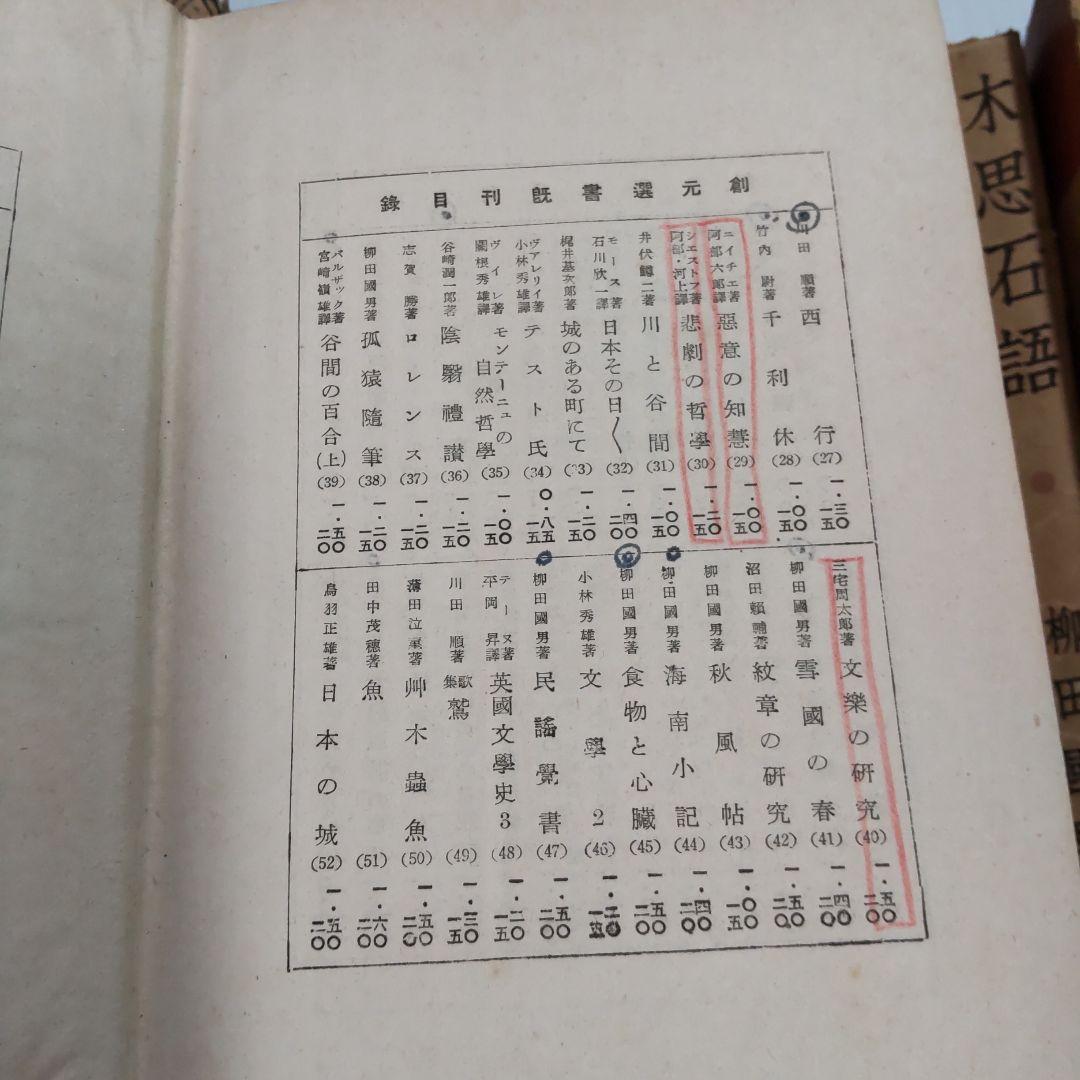 創元選書既刊目錄
川田順著 西行 (27) 一・三〇 一五
竹內尉著 千利休 (28) 一・〇〇 一五
ニイチェ著 阿部六郎譯 惡意の知慧 (29) 一・〇〇 一五
シェストフ著 阿部・河上譯 悲劇の哲學 (30) 一・二〇 一五
井伏鱒二著 川と谷間 (31) 一・〇〇 一五
モース著 石川欣一譯 日本その日〱 (32) 一・四〇 二〇
梶井基次郎著 城のある町にて (33) 一・二〇 一五
ヴァレリイ著 小林秀雄譯 テスト氏 (34) 〇・八五 一五
ヴィレ著 關根秀雄譯 モンテーニュの自然哲學 (35) 一・〇〇 一五
谷崎潤一郎著 陰翳禮讃 (36) 一・二〇 一五
志賀勝著 ロレンス (37) 一・二〇 一五
柳田國男著 孤猿隨筆 (38) 一・二〇 一五
バルザック著 宮崎嶺雄譯 谷間の百合(上) (39) 一・五〇 二〇
三宅周太郎著 文樂の硏究 (40) 一・五〇 二〇
柳田國男著 雪國の春 (41) 一・四〇 二〇
沼田賴輔著 紋章の硏究 (42) 一・五〇 二〇
柳田國男著 秋風帖 (43) 一・〇〇 一五
柳田國男著 海南小記 (44) 一・四〇 二〇
柳田國男著 食物と心臟 (45) 一・五〇 二〇
小林秀雄著 文學2 (46) 一・二〇 一五
柳田國男著 民謠覺書 (47) 一・五〇 二〇
テーヌ著 平岡昇譯 英國文學史3 (48) 一・二〇 一五
川田順著 歌集 鷲 (49) 一・三〇 一五
薄田泣菫著 艸木蟲魚 (50) 一・五〇 二〇
田中茂穗著 魚 (51) 一・六〇 二〇
鳥羽正雄著 日本の城 (52) 一・五〇 二〇
木思石語
柳田國